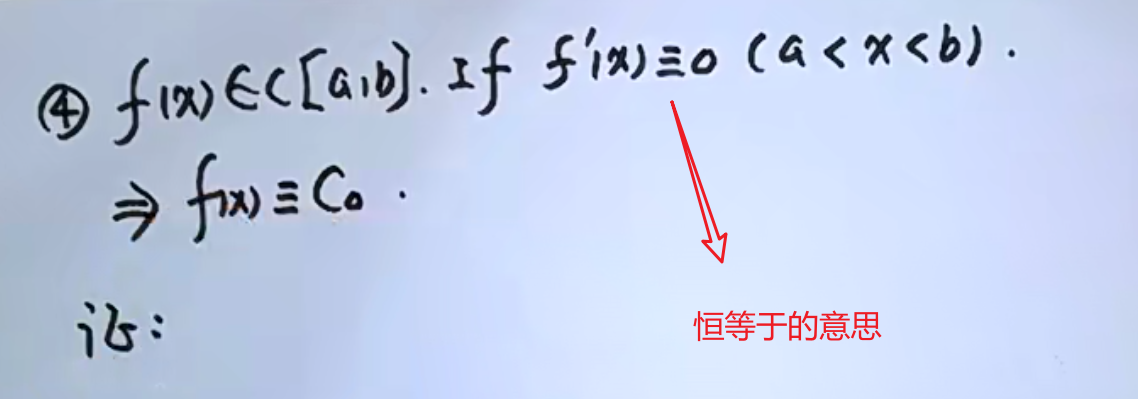 ④ f(x)∈C[a,b]. If f'(x)≡0 (a<x<b).
⇒ f(x)≡C₀.
恒等于的意思
证: